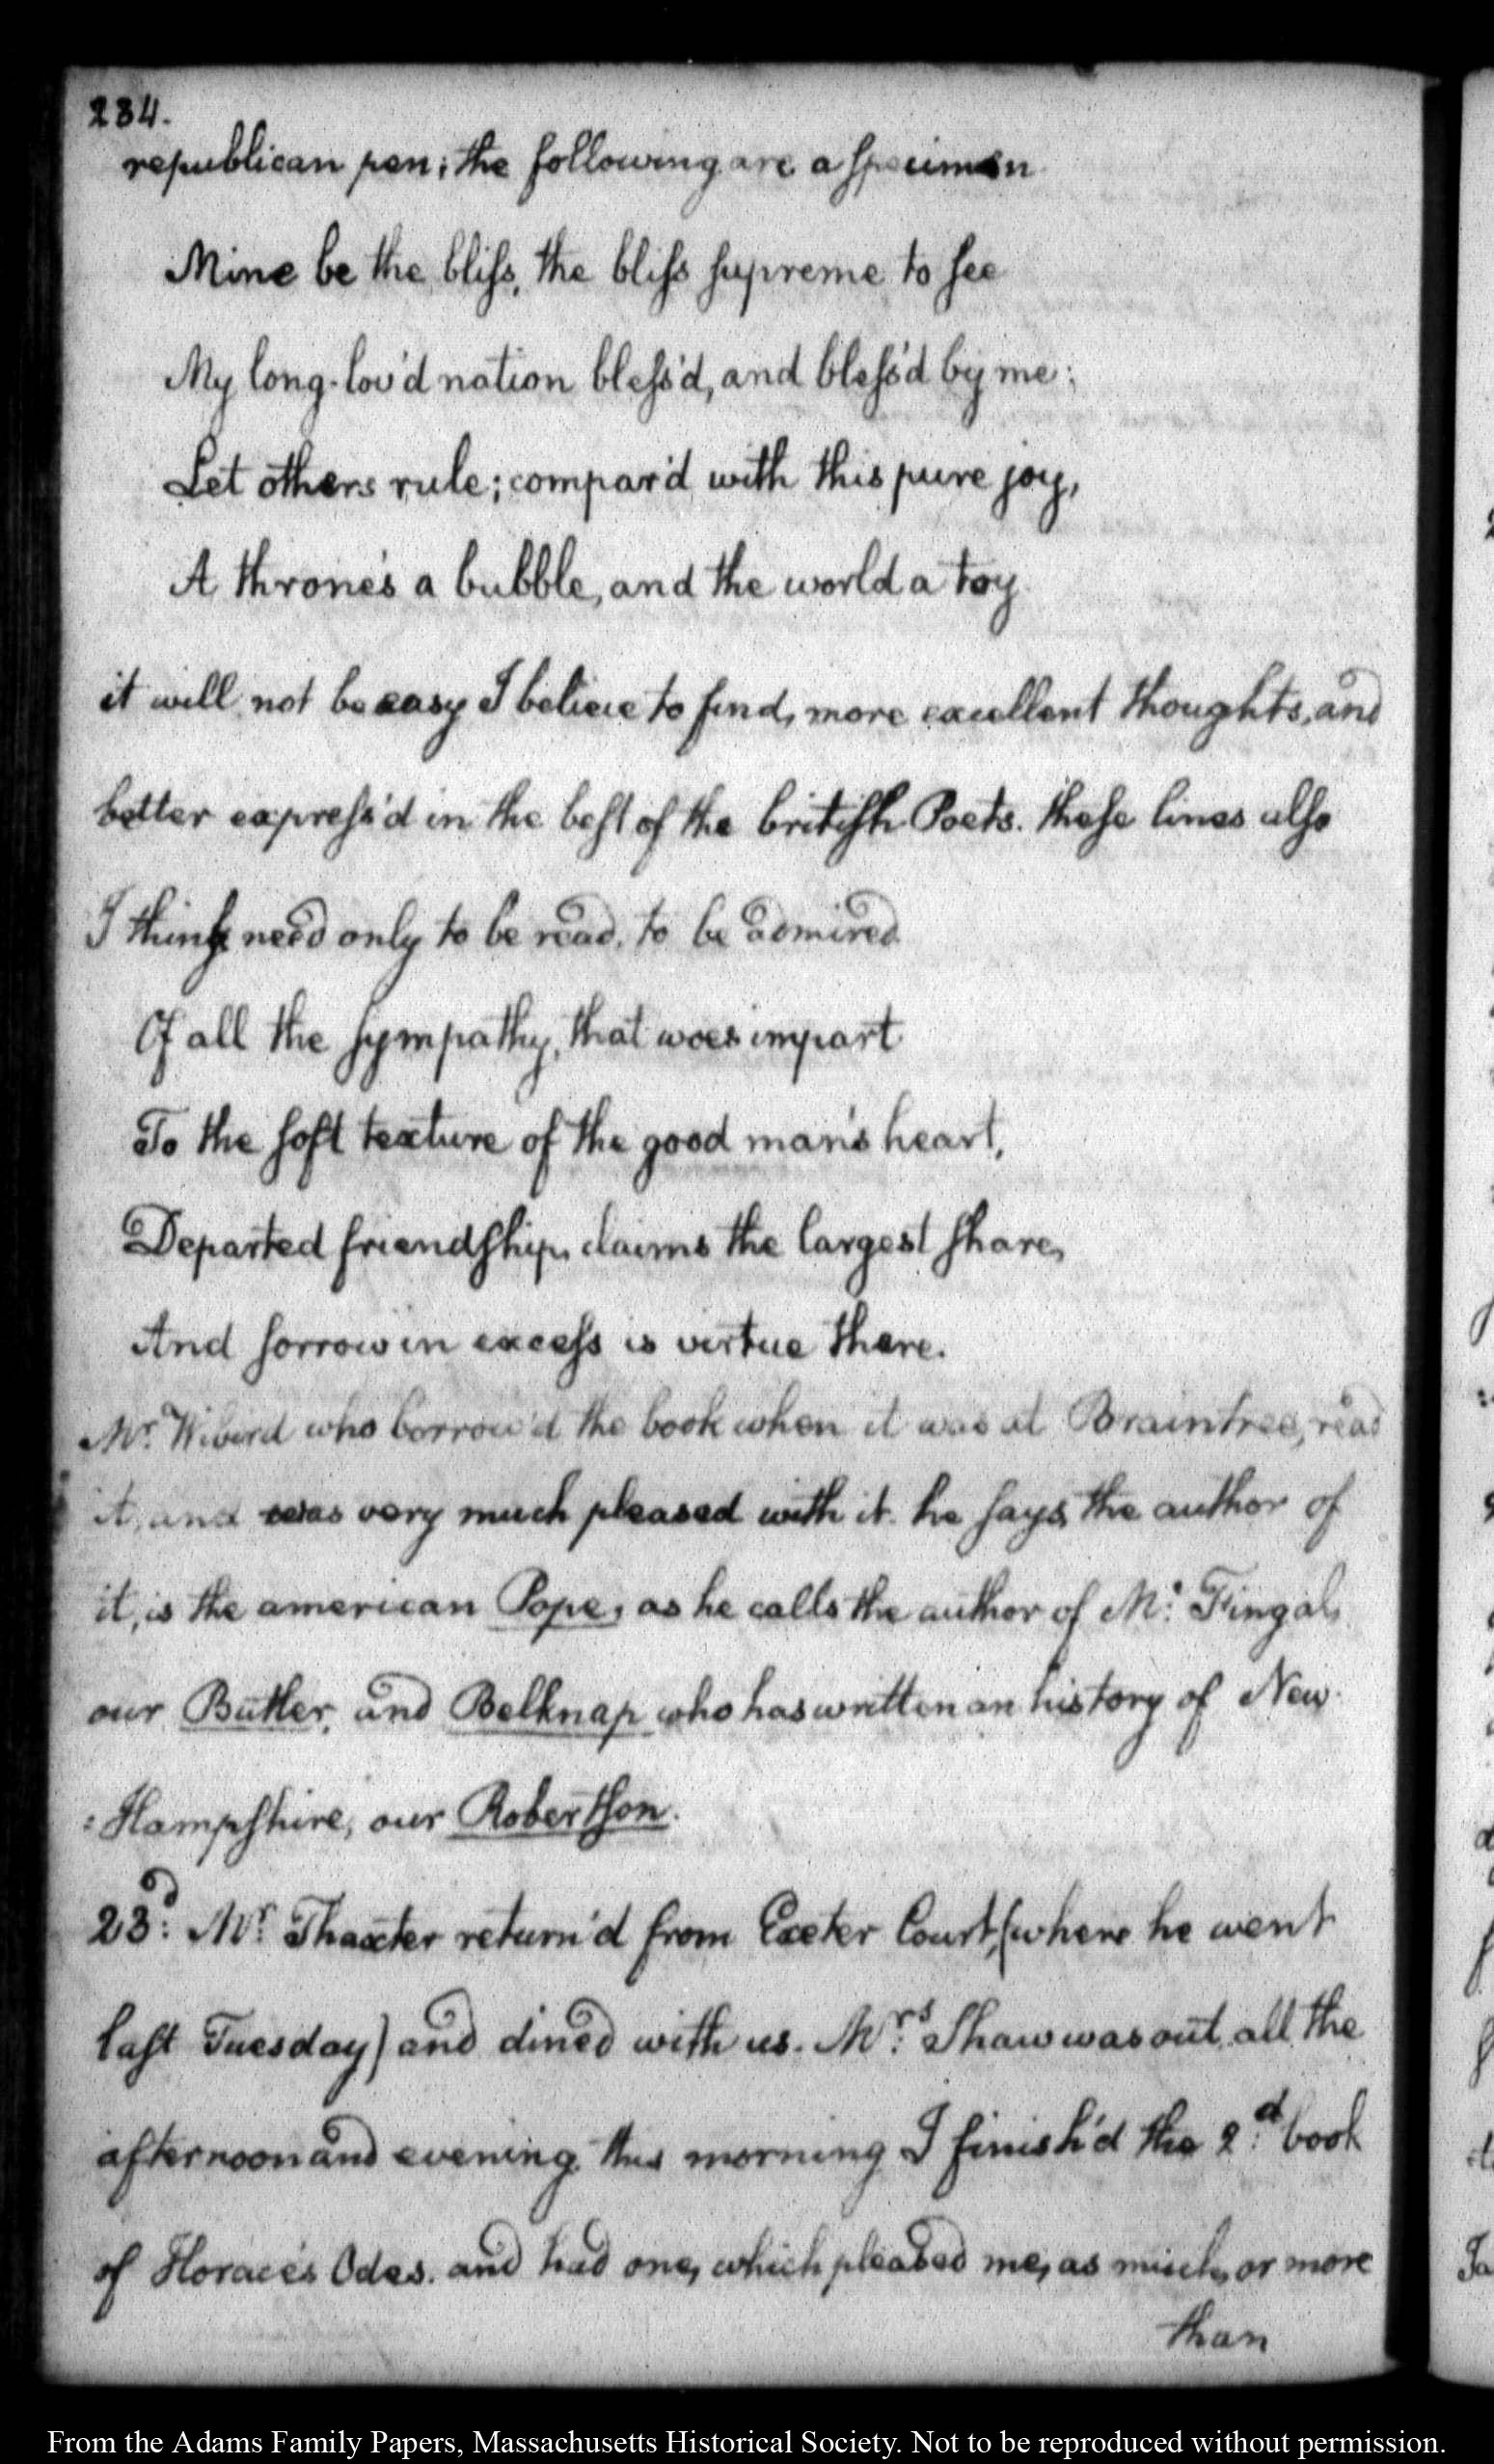 234.
republican pen; the following are a specimen
Mine be the bliss, the bliss supreme to see
My long-lov'd nation bless'd, and bless'd by me:
Let others rule; compar'd with this pure joy,
A throne's a bubble, and the world a toy
it will not be easy I believe to find, more excellent thoughts, and
better express'd in the best of the british Poets. these lines also
I think need only to be read, to be admired
Of all the sympathy, that woes impart
To the soft texture of the good man's heart,
Departed friendship, claims the largest share,
And sorrow in excess is virtue there.
Mr. Wibird who borrow'd the book when it was at Braintree, read
it, and was very much pleased with it. he says, the author of
it, is the american Pope, as he calls the author of Mc: Fingal,
our Butler, and Belknap who has written an history of New-
:Hampshire, our Robertson.
23d: Mr. Thaxter return'd from Exeter Court, (where he went
last Tuesday) and dined with us. Mrs: Shaw was out, all the
afternoon and evening. this morning I finish'd the 2d: book
of Horace's Odes. and had one, which pleased me, as much, or more
than
From the Adams Family Papers, Massachusetts Historical Society. Not to be reproduced without permission.